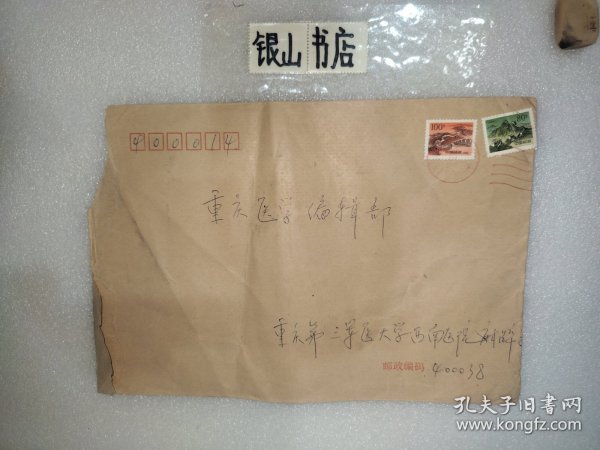 银山书店
100分
80分
400014
重庆医学编辑部
重庆第三军医大学西南医院
邮政编码 400038
孔夫子旧书网
www.kongfz.com